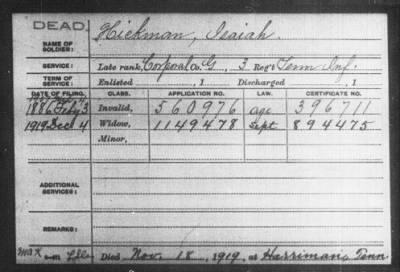 DEAD
NAME OF SOLDIER: Hickman, Isaiah.
SERVICE: Late rank, Corporal Co. G, 3 Reg't Tenn Inf.
TERM OF SERVICE: Enlisted , 1 Discharged , 1
DATE OF FILING. CLASS. APPLICATION NO. LAW. CERTIFICATE NO.
1886 Feby 3 Invalid, 560976 age 396711
1919 Dec 4 Widow, 1149478 Sept 894475
Minor,
ADDITIONAL SERVICES:
REMARKS:
Died Nov. 18, 1919, at Harriman, Tenn